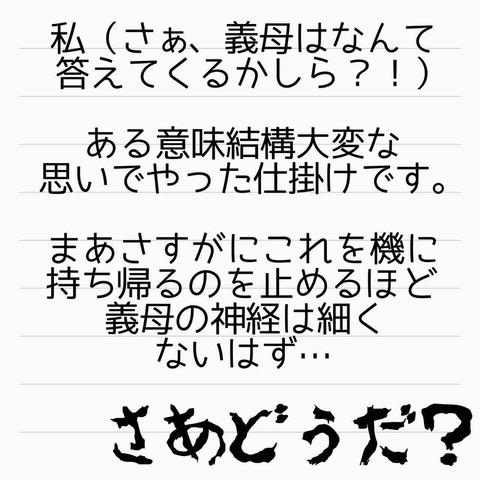 私（さぁ、義母はなんて
答えてくるかしら？！）
ある意味結構大変な
思いでやった仕掛けです。
まあさすがにこれを機に
持ち帰るのを止めるほど
義母の神経は細く
ないはず…
さあどうだ？